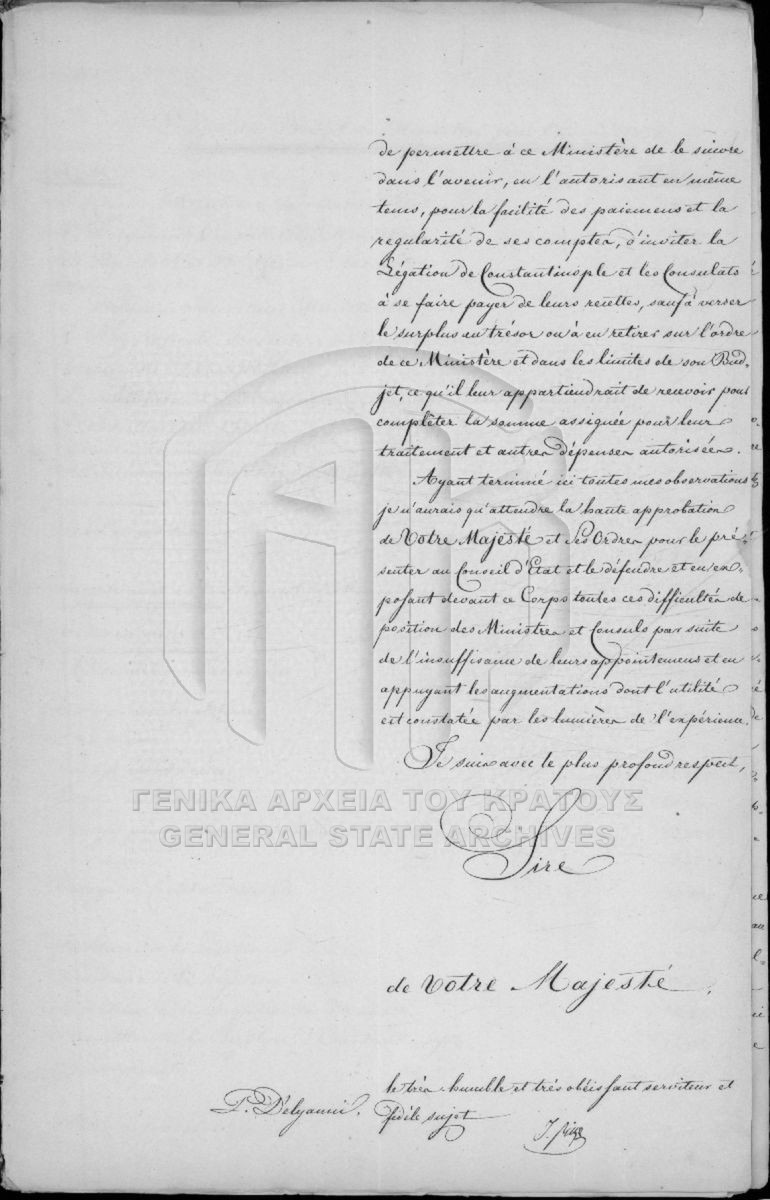 de permettre à ce Ministère de le suivre
dans l'avenir, en l'autorisant en même
tems, pour la facilité des paiemens et la
regularité de ses comptes, d'inviter la
Légation de Constantinople et les Consulats
à se faire payer de leurs recettes, sauf à verser
le surplus au trésor ou à en retirer sur l'ordre
de ce Ministère et dans les limites de son Bud-
jet, ce qu'il leur appartiendrait de recevoir pour
compléter la somme assignée pour leur
traitement et autres dépenses autorisées.
Ayant terminé ici toutes mes observations
je n'aurais qu'attendre la haute approbation
de Votre Majesté et Ses Ordres pour le pré-
senter au Conseil d'Etat et le défendre et en ex-
posant devant ce Corps toutes ces difficultés de
position des Ministres et Consuls par suite
de l'insuffisance de leurs appointemens et en
appuyant les augmentations dont l'utilité
est constatée par les lumières de l'expérience.
Je suis avec le plus profond respect,
ΓΕΝΙΚΑ ΑΡΧΕΙΑ ΤΟΥ ΚΡΑΤΟΥΣ
GENERAL STATE ARCHIVES
Sire
de Votre Majesté
le très humble et très obéissant serviteur et
fidèle sujet
P. Délyanni.